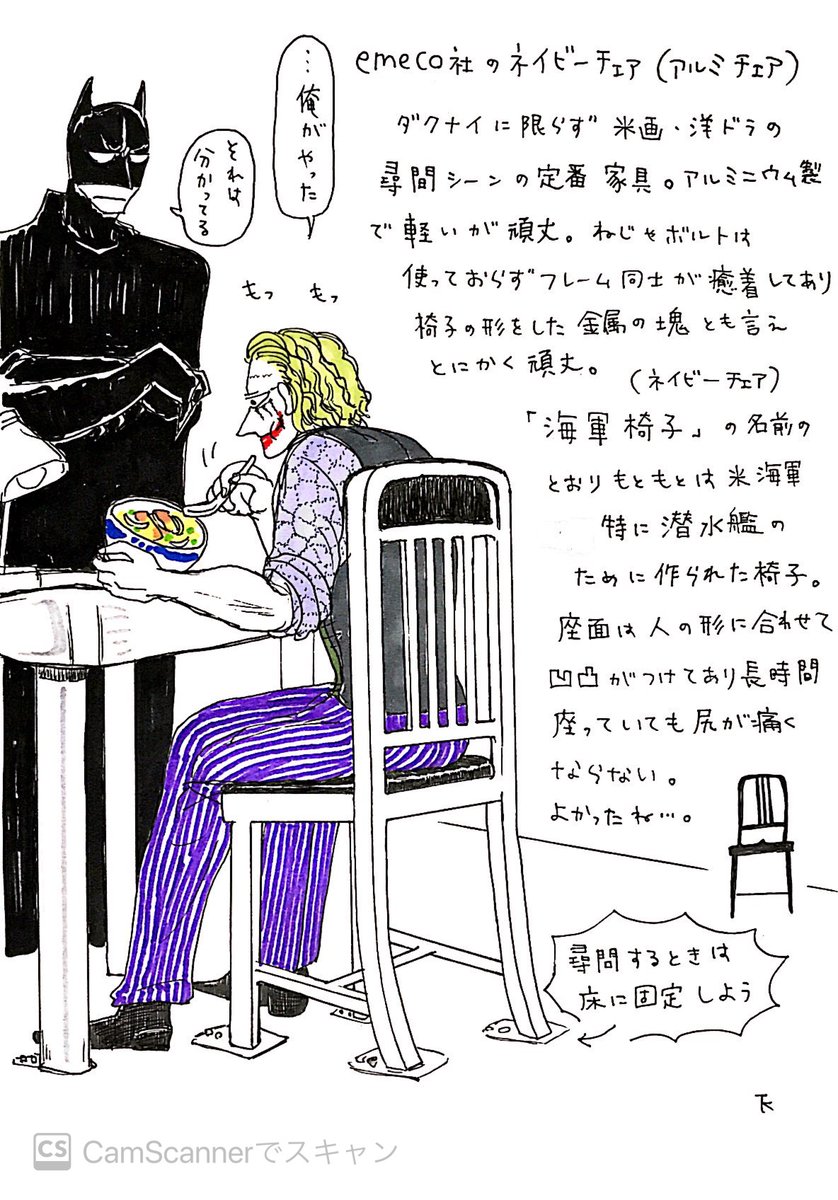 emeco社のネイビーチェア(アルミチェア)
ダクナイに限らず米画・洋ドラの
尋間シーンの定番家具。アルミニウム製
で軽いが頑丈。ねじやボルトは
使っておらずフレーム同士が癒着してあり
椅子の形をした金属の塊とも言え
とにかく頑丈。
(ネイビーチェア)
「海軍椅子」の名前の
とおりもともとは米海軍
特に潜水艦の
ために作られた椅子。
座面は人の形に合わせて
凹凸がつけてあり長時間
座っていても尻が痛く
ならない。
よかったね…。
…俺が
やった
それは
分かってる
もっ もっ
尋問するときは
床に固定しよう
CS CamScannerでスキャン